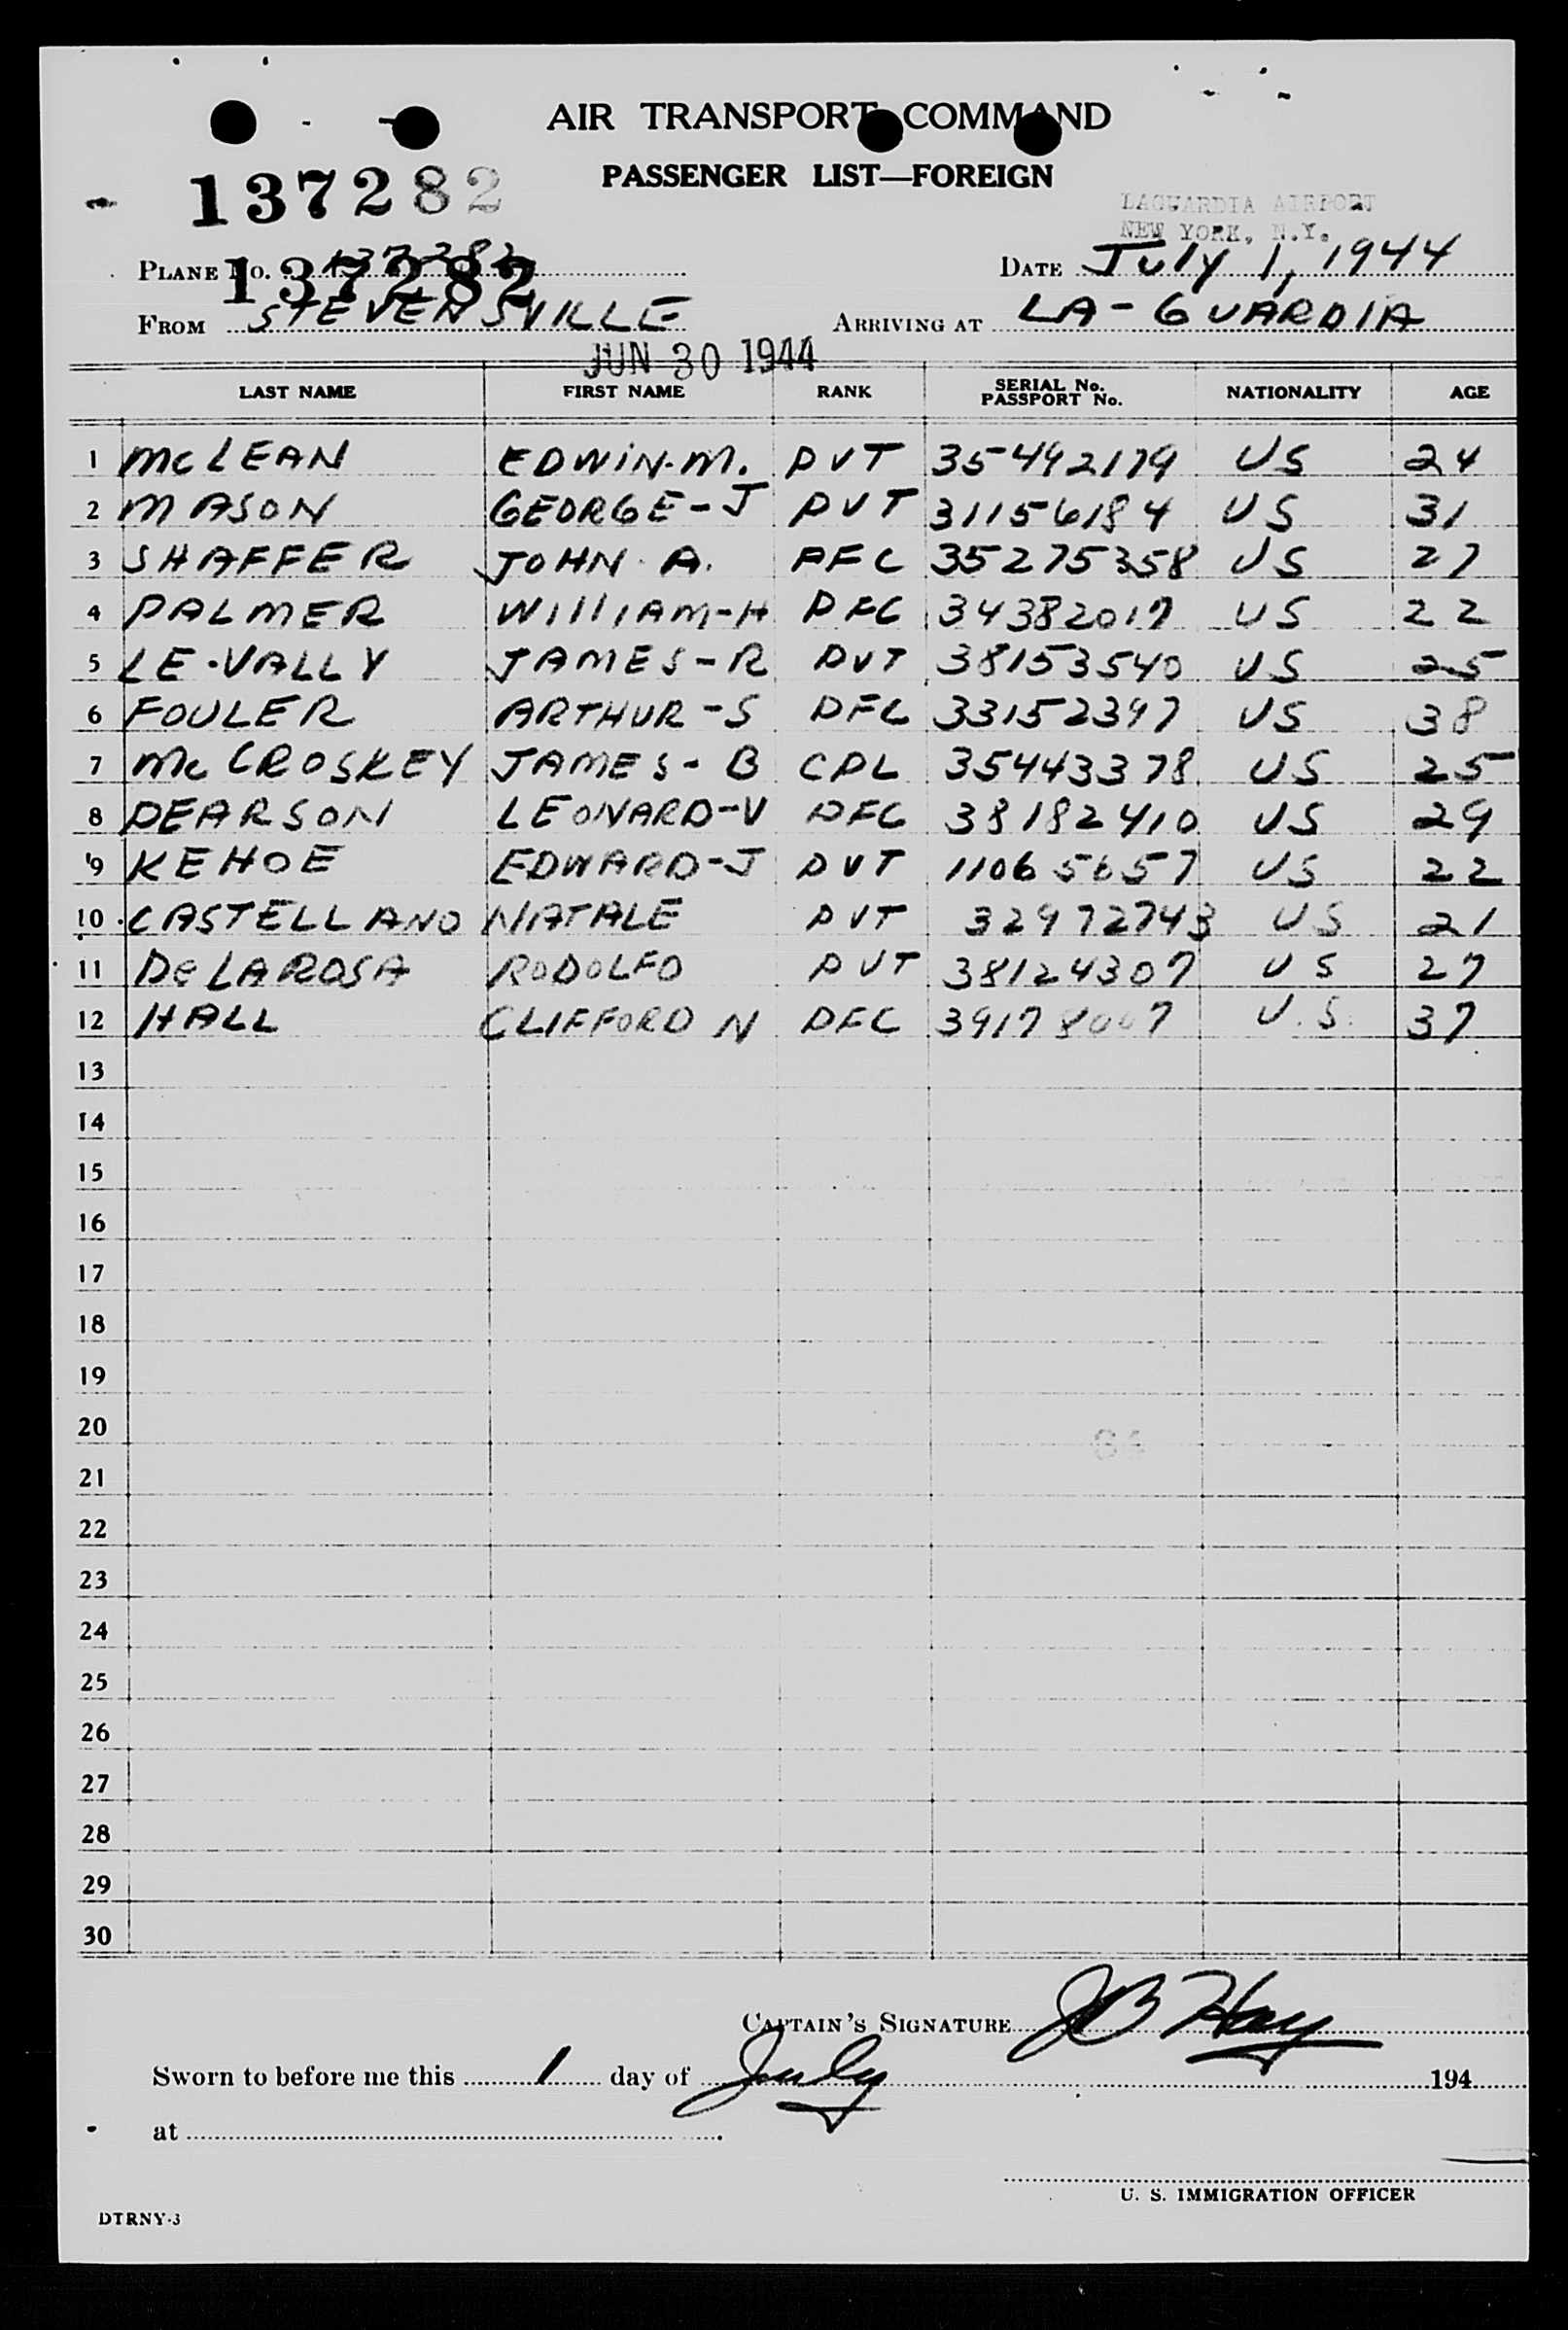 AIR TRANSPORT COMMAND
PASSENGER LIST—FOREIGN
137282
LAGUARDIA AIRPORT
NEW YORK, N.Y.
PLANE No. 137282 DATE July 1, 1944
137282
FROM STEVENSVILLE ARRIVING AT LA-GUARDIA
JUN 30 1944
LAST NAME FIRST NAME RANK SERIAL No. PASSPORT No. NATIONALITY AGE
1 McLEAN EDWIN.M. PVT 35492179 US 24
2 MASON GEORGE-J PVT 31156184 US 31
3 SHAFFER JOHN A. PFC 35275358 US 27
4 PALMER WIllIAM-H PFC 34382017 US 22
5 LE-VALLY JAMES-R PVT 38153540 US 25
6 FOULER ARTHUR-S PFC 33152397 US 38
7 Mc CROSKEY JAMES-B CPL 35443378 US 25
8 PEARSON LEONARD-V PFC 38182410 US 29
9 KEHOE EDWARD-J PVT 11065657 US 22
10 CASTELLANO NATALE PVT 32972743 US 21
11 DeLAROSA RODOLFO PVT 38124307 US 27
12 HALL CLIFFORD N PFC U.S. 37
13
14
15
16
17
18
19
20
21
22
23
24
25
26
27
28
29
30
CAPTAIN'S SIGNATURE JB Hay
Sworn to before me this 1 day of July 194
at
U. S. IMMIGRATION OFFICER
DTRNY-3